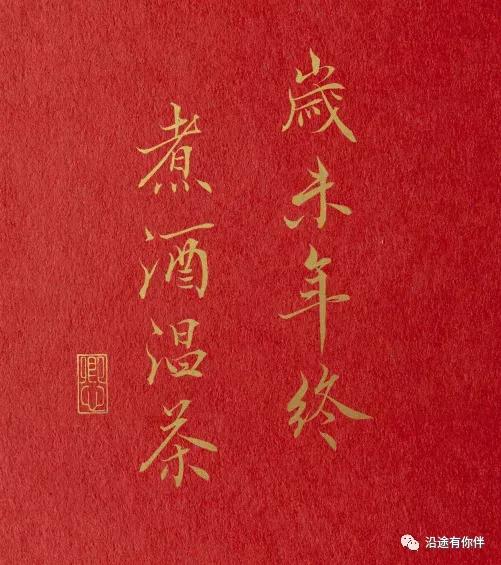 歲末年终
煮酒温茶
沿途有你伴